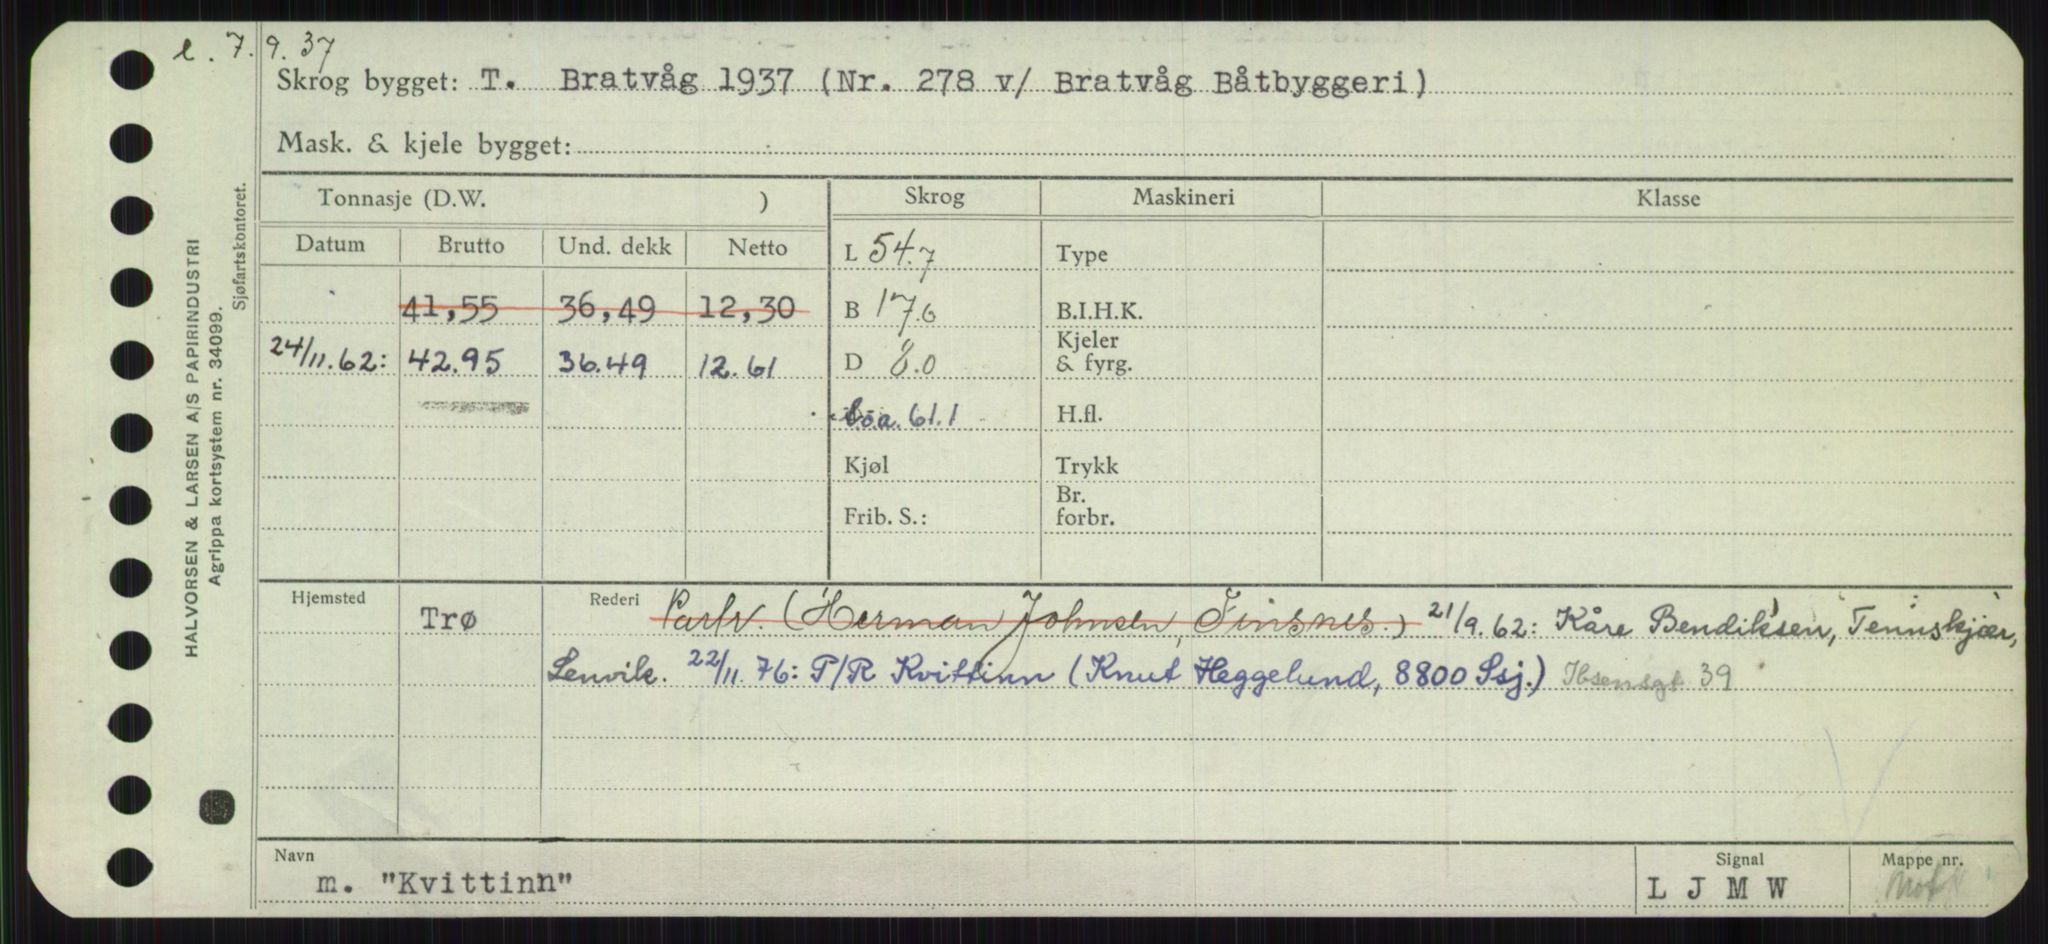 l. 7.9.37
Skrog bygget: T. Bratvåg 1937 (Nr. 278 v/ Bratvåg Båtbyggeri)
Mask. & kjele bygget:
Tonnasje (D.W. )
Skrog
Maskineri
Klasse
Datum
Brutto
Und. dekk
Netto
L 54.7
Type
41,55
36,49
12,30
B 17.6
B.I.H.K.
24/11.62:
42.95
36.49
12.61
D 8.0
Kjeler
& fyrg.
l.o.a. 61.1
H.fl.
Kjøl
Trykk
Frib. S.:
Br.
forbr.
Hjemsted
Trø
Rederi
Partr. (Herman Johnsen, Finsnes.) 21/9.62: Kåre Bendiksen, Tennskjær,
Lenvik. 22/11.76: P/R Kvittinn (Knut Heggelund, 8800 Ssj.) Ibsensgt 39
Navn
m. "Kvittinn"
Signal
L J M W
Mappe nr.
HALVORSEN & LARSEN A/S PAPIRINDUSTRI
Agrippa kortsystem nr. 34099.
Sjøfartskontoret.